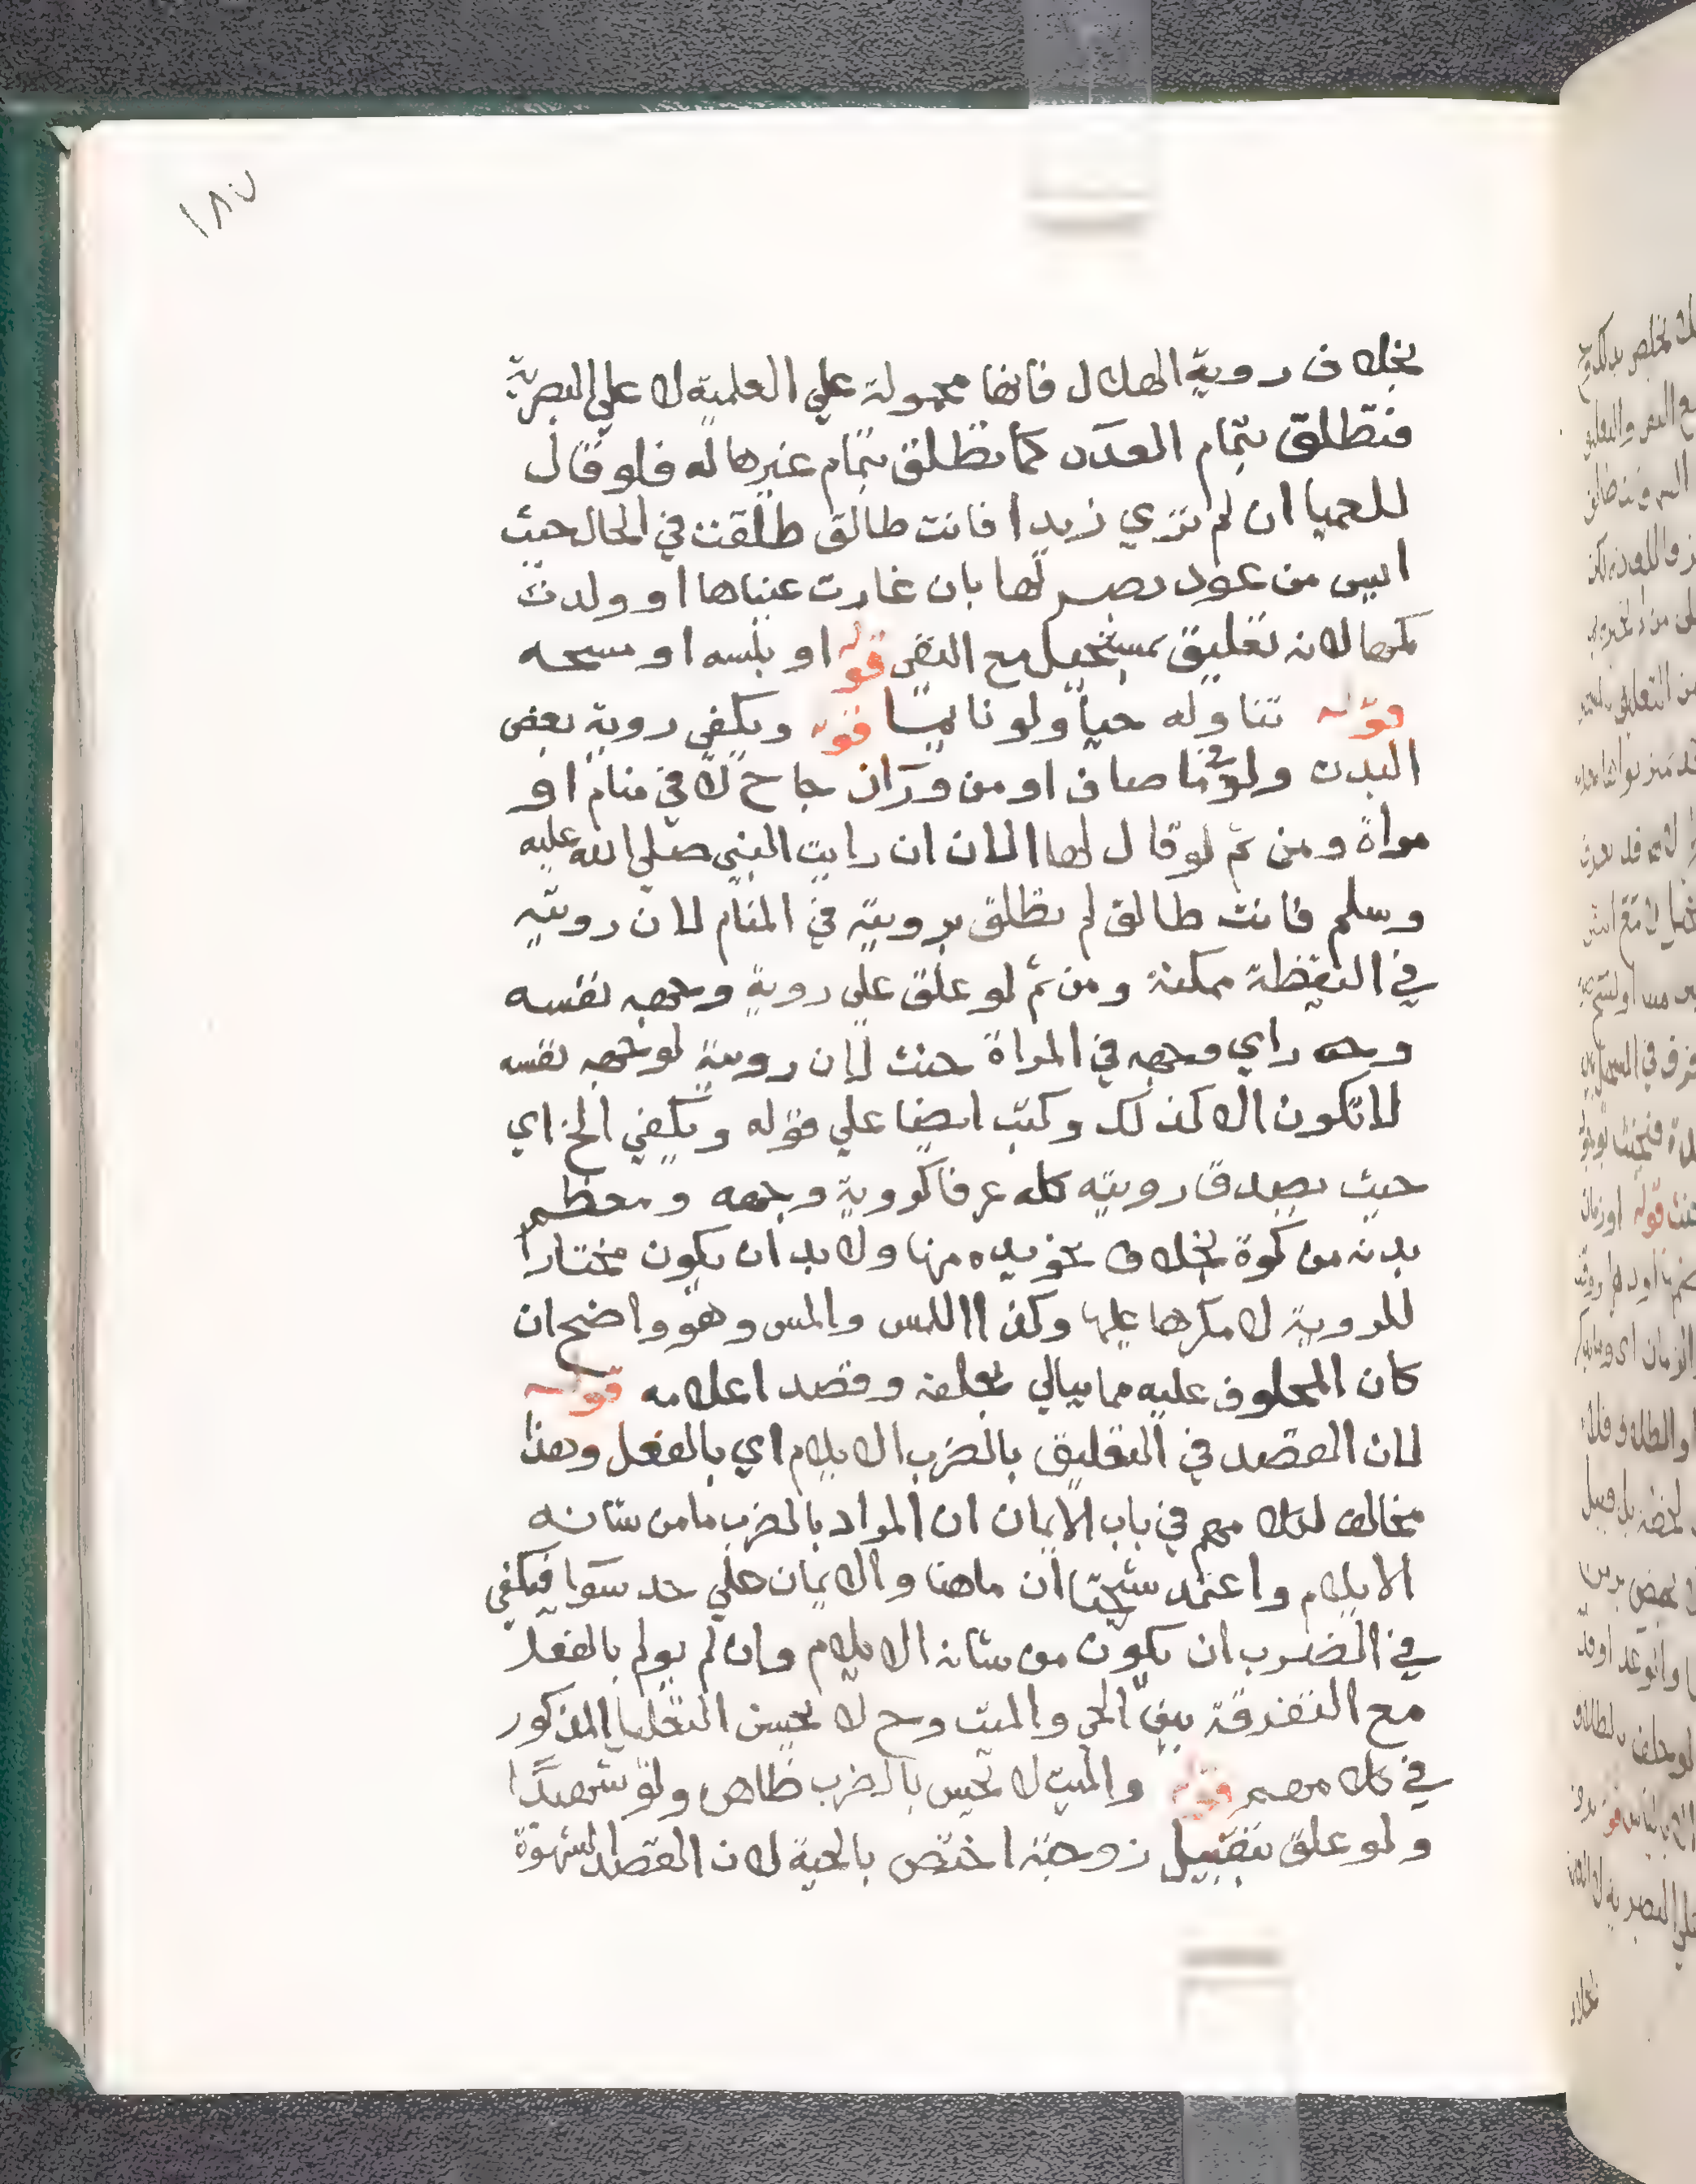 ١٨٥
بخلاف روية الهلال فانها محمولة علي العلمية لا علي البصرية
فتطلق بتمام العدد كما تطلق بتمام غيرها له فلو قال
للعميا ان لم تري زيدا فانت طالق طلقت في الحال حيث
ايس من عود بصر لها بان غارت عيناها او ولدت
كمها لانه تعليق بمستحيل مع النفي قوله او بلسه او مسحه
قوله تتناوله حيا ولو نايما قوله ويكفي روية بعض
البدن ولو في ما صاف او من وراء زجاج لا في منام او
مراة ومن ثم لو قال لها الان ان رايت النبي صلي الله عليه
وسلم فانت طالق لم تطلق برويته في المنام لان رويته
في اليقظة ممكنة ومن ثم لو علق علي روية وجهه نفسه
وجه راي وجهه في المراة حنث لان روية لوجهه نفسه
لا تكون الا كذلك وكتب ايضا علي قوله ويكفي الخ اي
حيث يصدق رويته كله عرفا كروية وجهه ومعظم
بدنه من كوة بخلاف نحو يده منها ولا بد ان يكون مختارا
للروية لا مكرها عليها وكذا اللمس والمس وهو واضح ان
كان المحلوف عليه مما يبالي بحلفه وقصد اعلامه قوله
لان القصد في التعليق بالضرب الايلام اي بالفعل وهذا
مخالف لكلامهم في باب الايمان ان المراد بالضرب ما من شانه
الايلام واعتمد شيخنا ان ما هنا والايمان علي حد سوا فيكفي
في الضرب ان يكون من شانه الايلام وان لم يولم بالفعل
مع التفرقة بين الحي والميت وح لا يحسن التعليل المذكور
في كلامهم قوله والميت لا يحس بالضرب ظاهر ولو شهيدا
ولو علق بتقبيل زوجته اختص بالحية لان القصد الشهوة